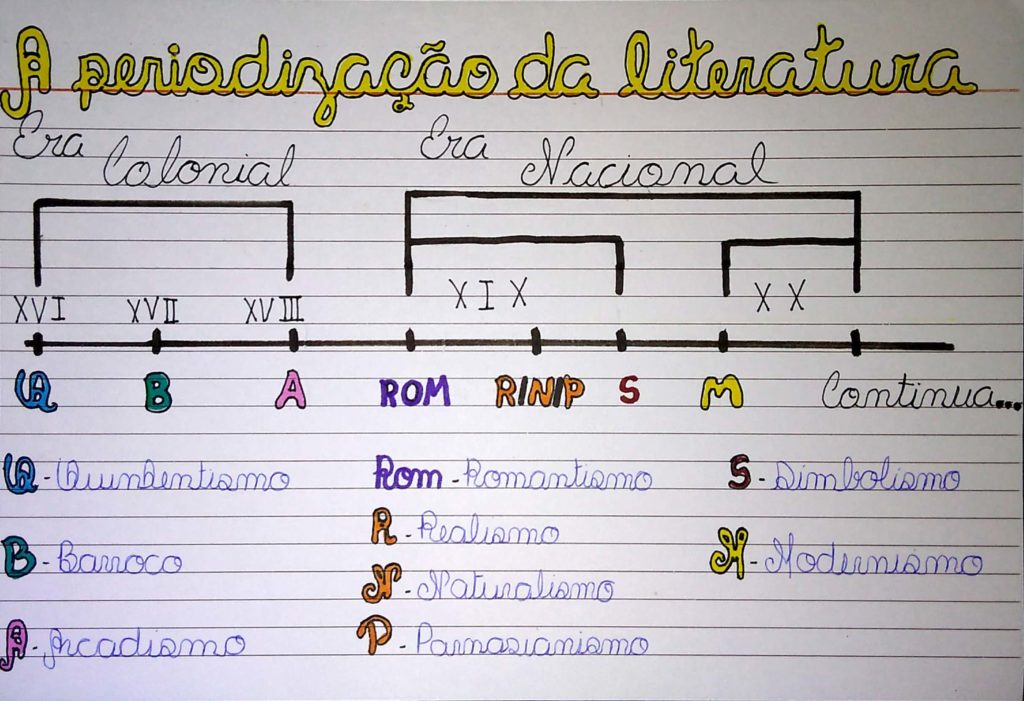 A periodização da literatura
Era Colonial
Era Nacional
XVI XVII XVIII XIX XX
Q B A ROM R/N/P S M Continua...
Q - Quinhentismo
B - Barroco
A - Arcadismo
Rom - Romantismo
R - Realismo
N - Naturalismo
P - Parnasianismo
S - Simbolismo
M - Modernismo